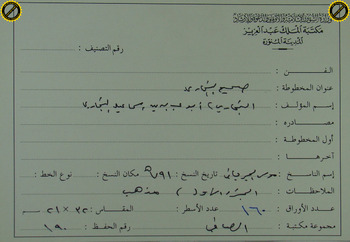 وزارة الشؤون الإسلامية والأوقاف والدعوة والإرشاد
مكتبة الملك عبد العزيز
المدينة المنورة
رقم التصنيف :
الفـن :
عنوان المخطوطة : صحيح البخاري
إسم المؤلف : البخاري
مصادره :
أول المخطوطة :
آخـرهـا :
إسم الناسخ : تاريخ النسخ : مكان النسخ : نوع الخط :
الملاحظات : الجزء الأول ) مذهب
عدد الأوراق : ١٦٠ عدد الأسطر : المقاس : ٣٢ × ٢١ سم
مجموعة مكتبة : الصافي رقم الحفظ : ١٩٠